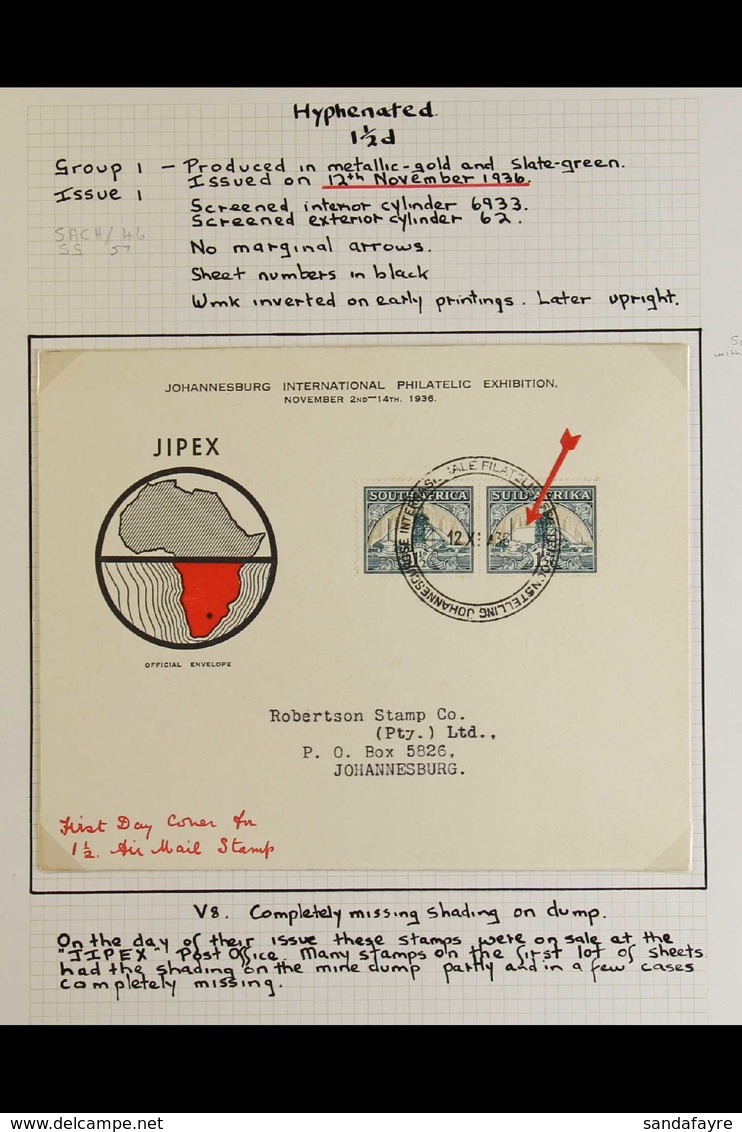 Hyphenated.
1½d
Group 1 – Produced in metallic-gold and slate-green.
Issue 1 Issued on 12th November 1936.
Screened interior cylinder 6933.
Screened exterior cylinder 62.
SACH/46
SS 57
No marginal arrows.
Sheet numbers in black
Wmk inverted on early printings. Later upright.
JOHANNESBURG INTERNATIONAL PHILATELIC EXHIBITION.
NOVEMBER 2ND—14TH. 1936.
JIPEX
SOUTH AFRICA SUID-AFRIKA
12 XI 36
1½ 1½
OFFICIAL ENVELOPE
Robertson Stamp Co.
(Pty.) Ltd.,
P. O. Box 5826,
JOHANNESBURG.
First Day Cover for
1½. Air Mail Stamp
V8. Completely missing shading on dump.
On the day of their issue these stamps were on sale at the
"JIPEX" Post Office. Many stamps on the first lot of sheets
had the shading on the mine dump partly and in a few cases
completely missing.
www.delcampe.net
sandafayre